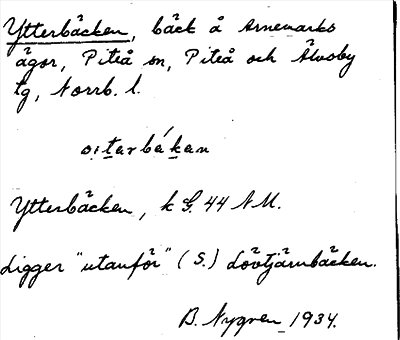 Ytterbäcken, bäck å Arnemarks
ägor, Piteå sn, Piteå och Älvsby
tg, Norrb. l.
Ytterbäcken, k G. 44 NM.
Ligger "utanför" (S.) Lövtjärnbäcken.
B. Nygren 1934.